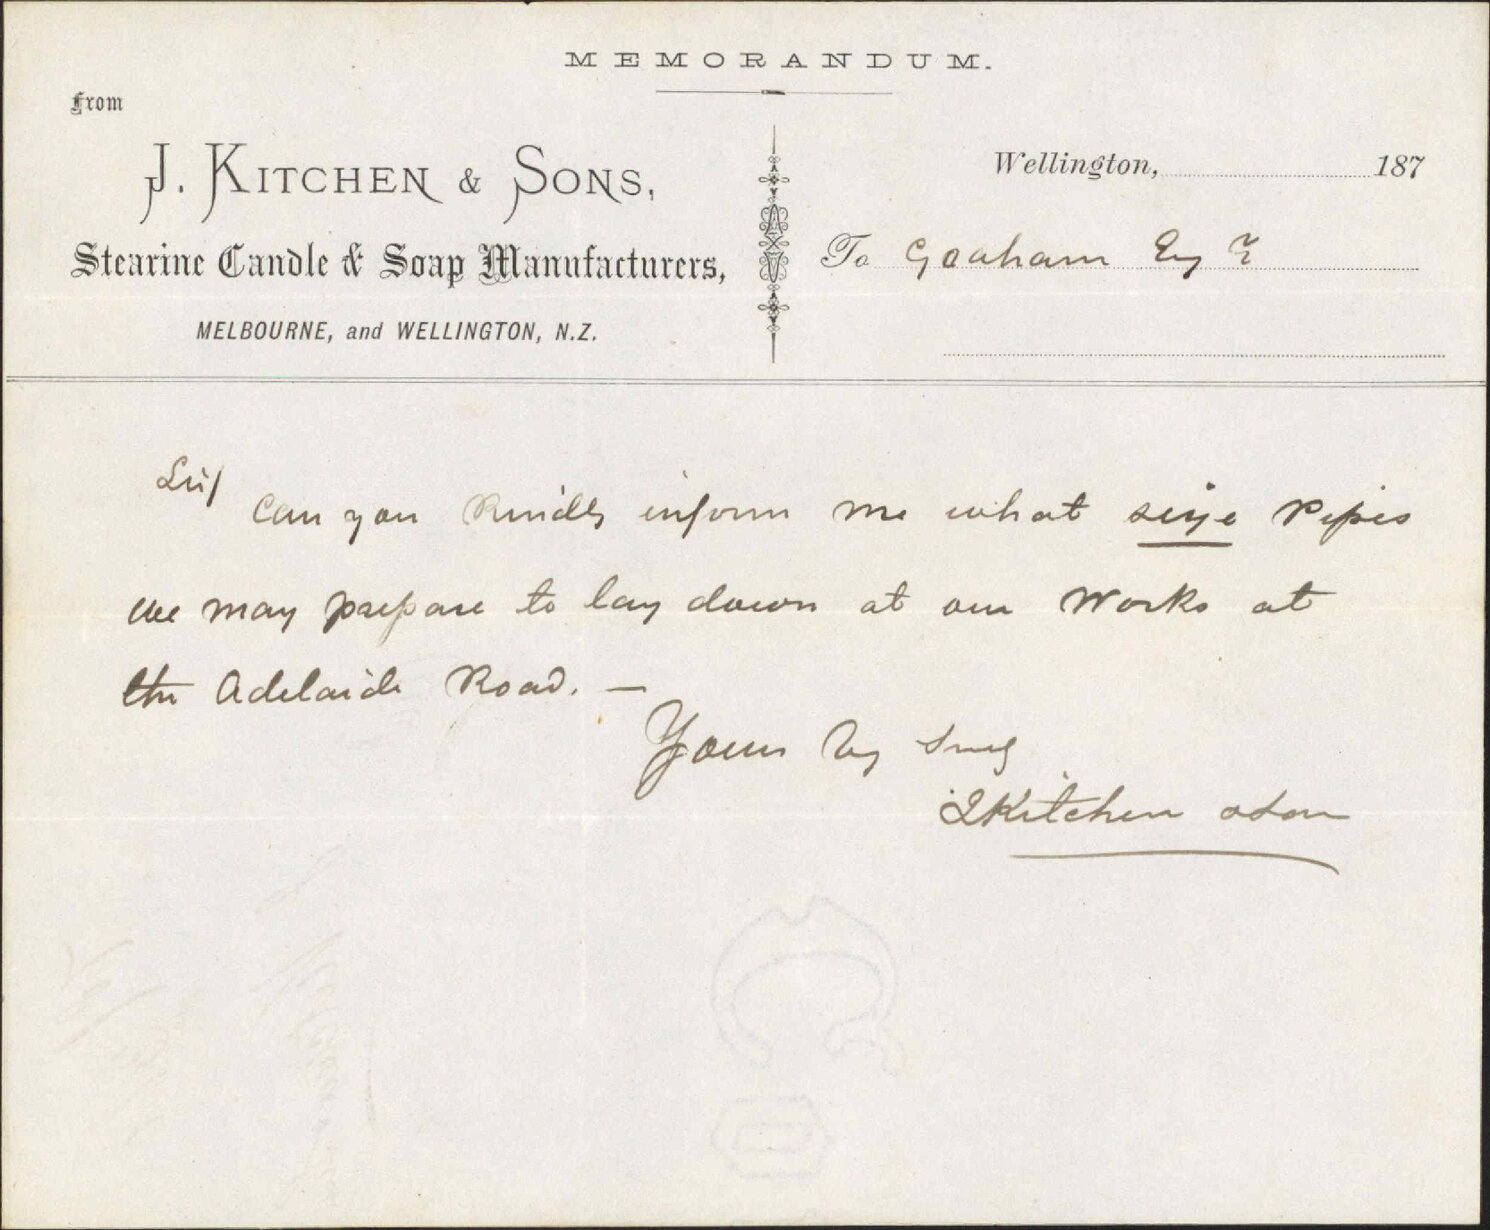 MEMORANDUM.
From
J. KITCHEN & SONS,
Stearine Candle & Soap Manufacturers,
MELBOURNE, and WELLINGTON, N.Z.
Wellington, 187
To Graham Esq
Sir/
Can you kindly inform me what size Pipes
we may prepare to lay down at our Works at
the Adelaide Road. —
Yours Truly
JKitchen & Son